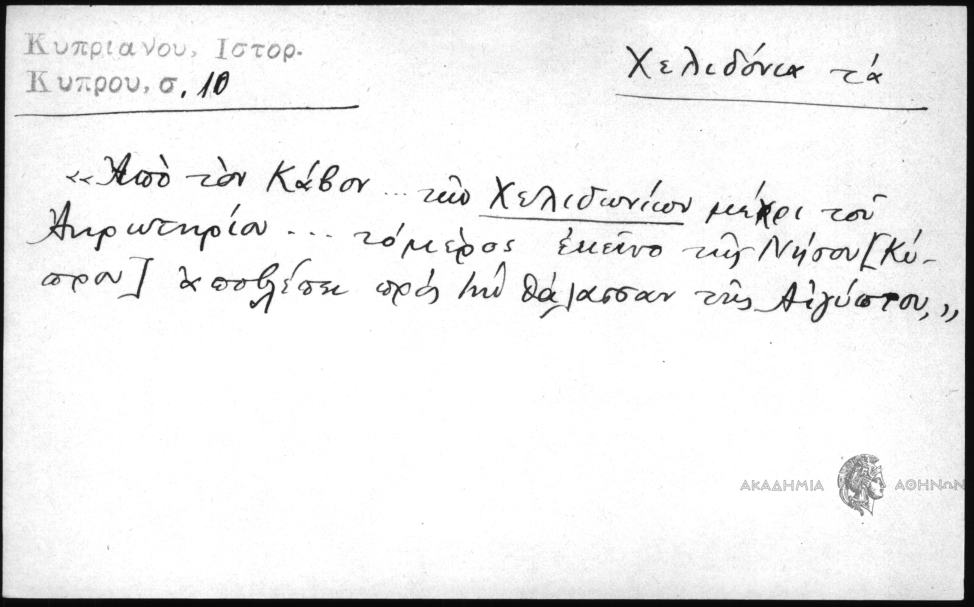 Κυπριανου, Ιστορ.
Κυπρου, σ. 10
Χελιδόνια τά
«Ἀπὸ τὸν Κάβον ... τῶν Χελιδωνίων μέχρι τοῦ
Ἀκρωτηρίου ... τό μέρος ἐκεῖνο τῆς Νήσου [Κύ-
πρου] ἀποβλέπει πρός τὴν θάλασσαν τῆς Αἰγύπτου,»
ΑΚΑΔΗΜΙΑ ΑΘΗΝΩΝ